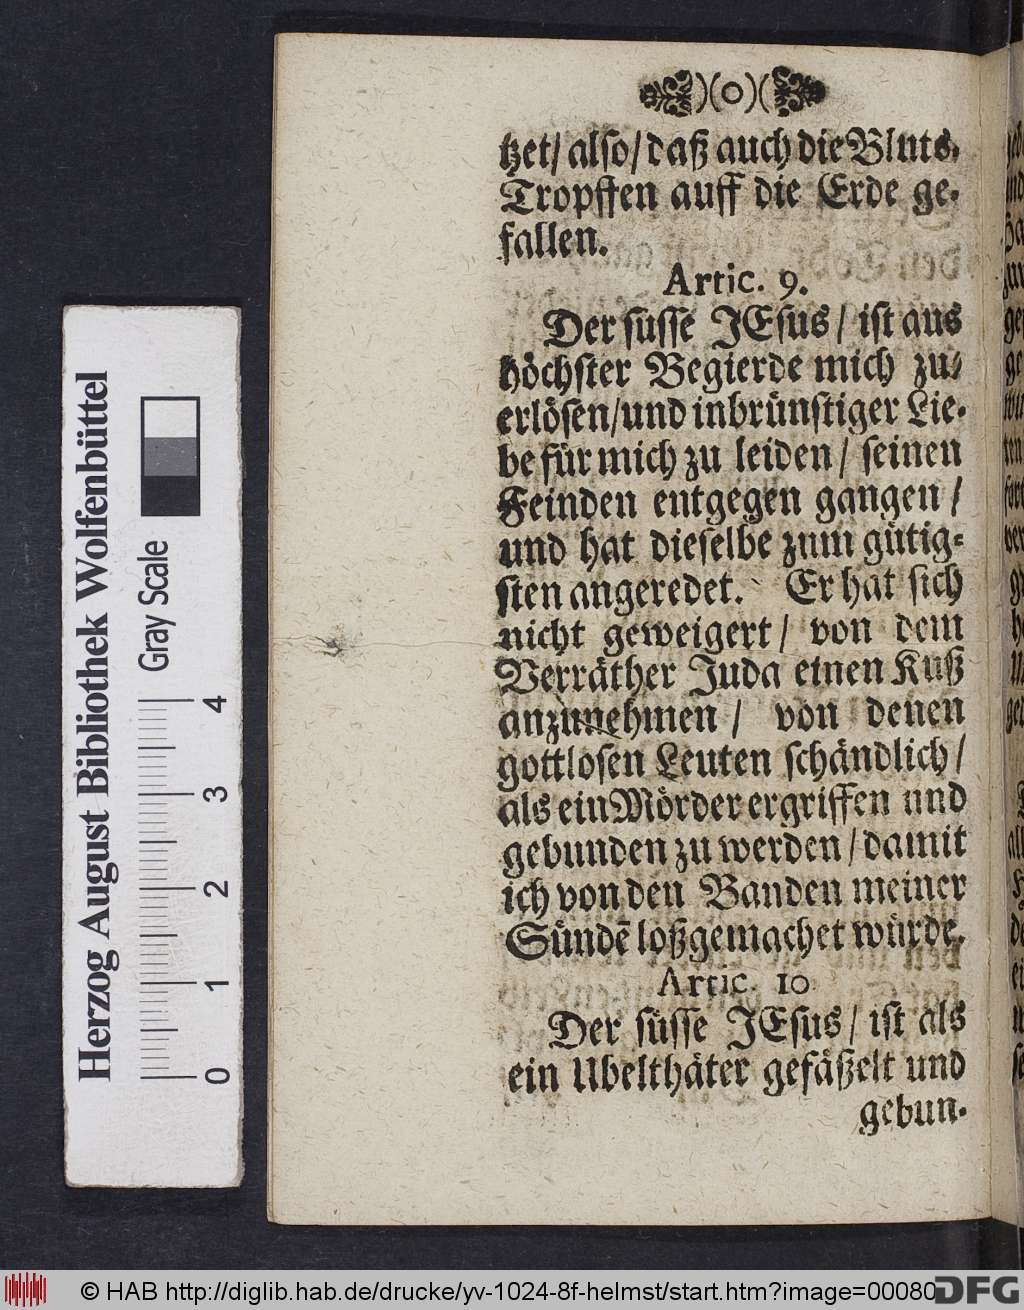 )(o)(
tzet/ also/ daß auch die Bluts-
Tropffen auff die Erde ge-
fallen.
Artic. 9.
Der süsse JEsus / ist aus
höchster Begierde mich zu-
erlösen/und inbrünstiger Lie-
be für mich zu leiden / seinen
Feinden entgegen gangen /
und hat dieselbe zum gütig-
sten angeredet. Er hat sich
nicht geweigert / von dem
Verräther Juda einen Kuß
anzunehmen / von denen
gottlosen Leuten schändlich /
als ein Mörder ergriffen und
gebunden zu werden / damit
ich von den Banden meiner
Sündē loßgemachet würde.
Artic. 10
Der süsse JEsus / ist als
ein Ubelthäter gefäßelt und
gebun-
Herzog August Bibliothek Wolfenbüttel
Gray Scale
0 1 2 3 4
© HAB http://diglib.hab.de/drucke/yv-1024-8f-helmst/start.htm?image=00080
DFG